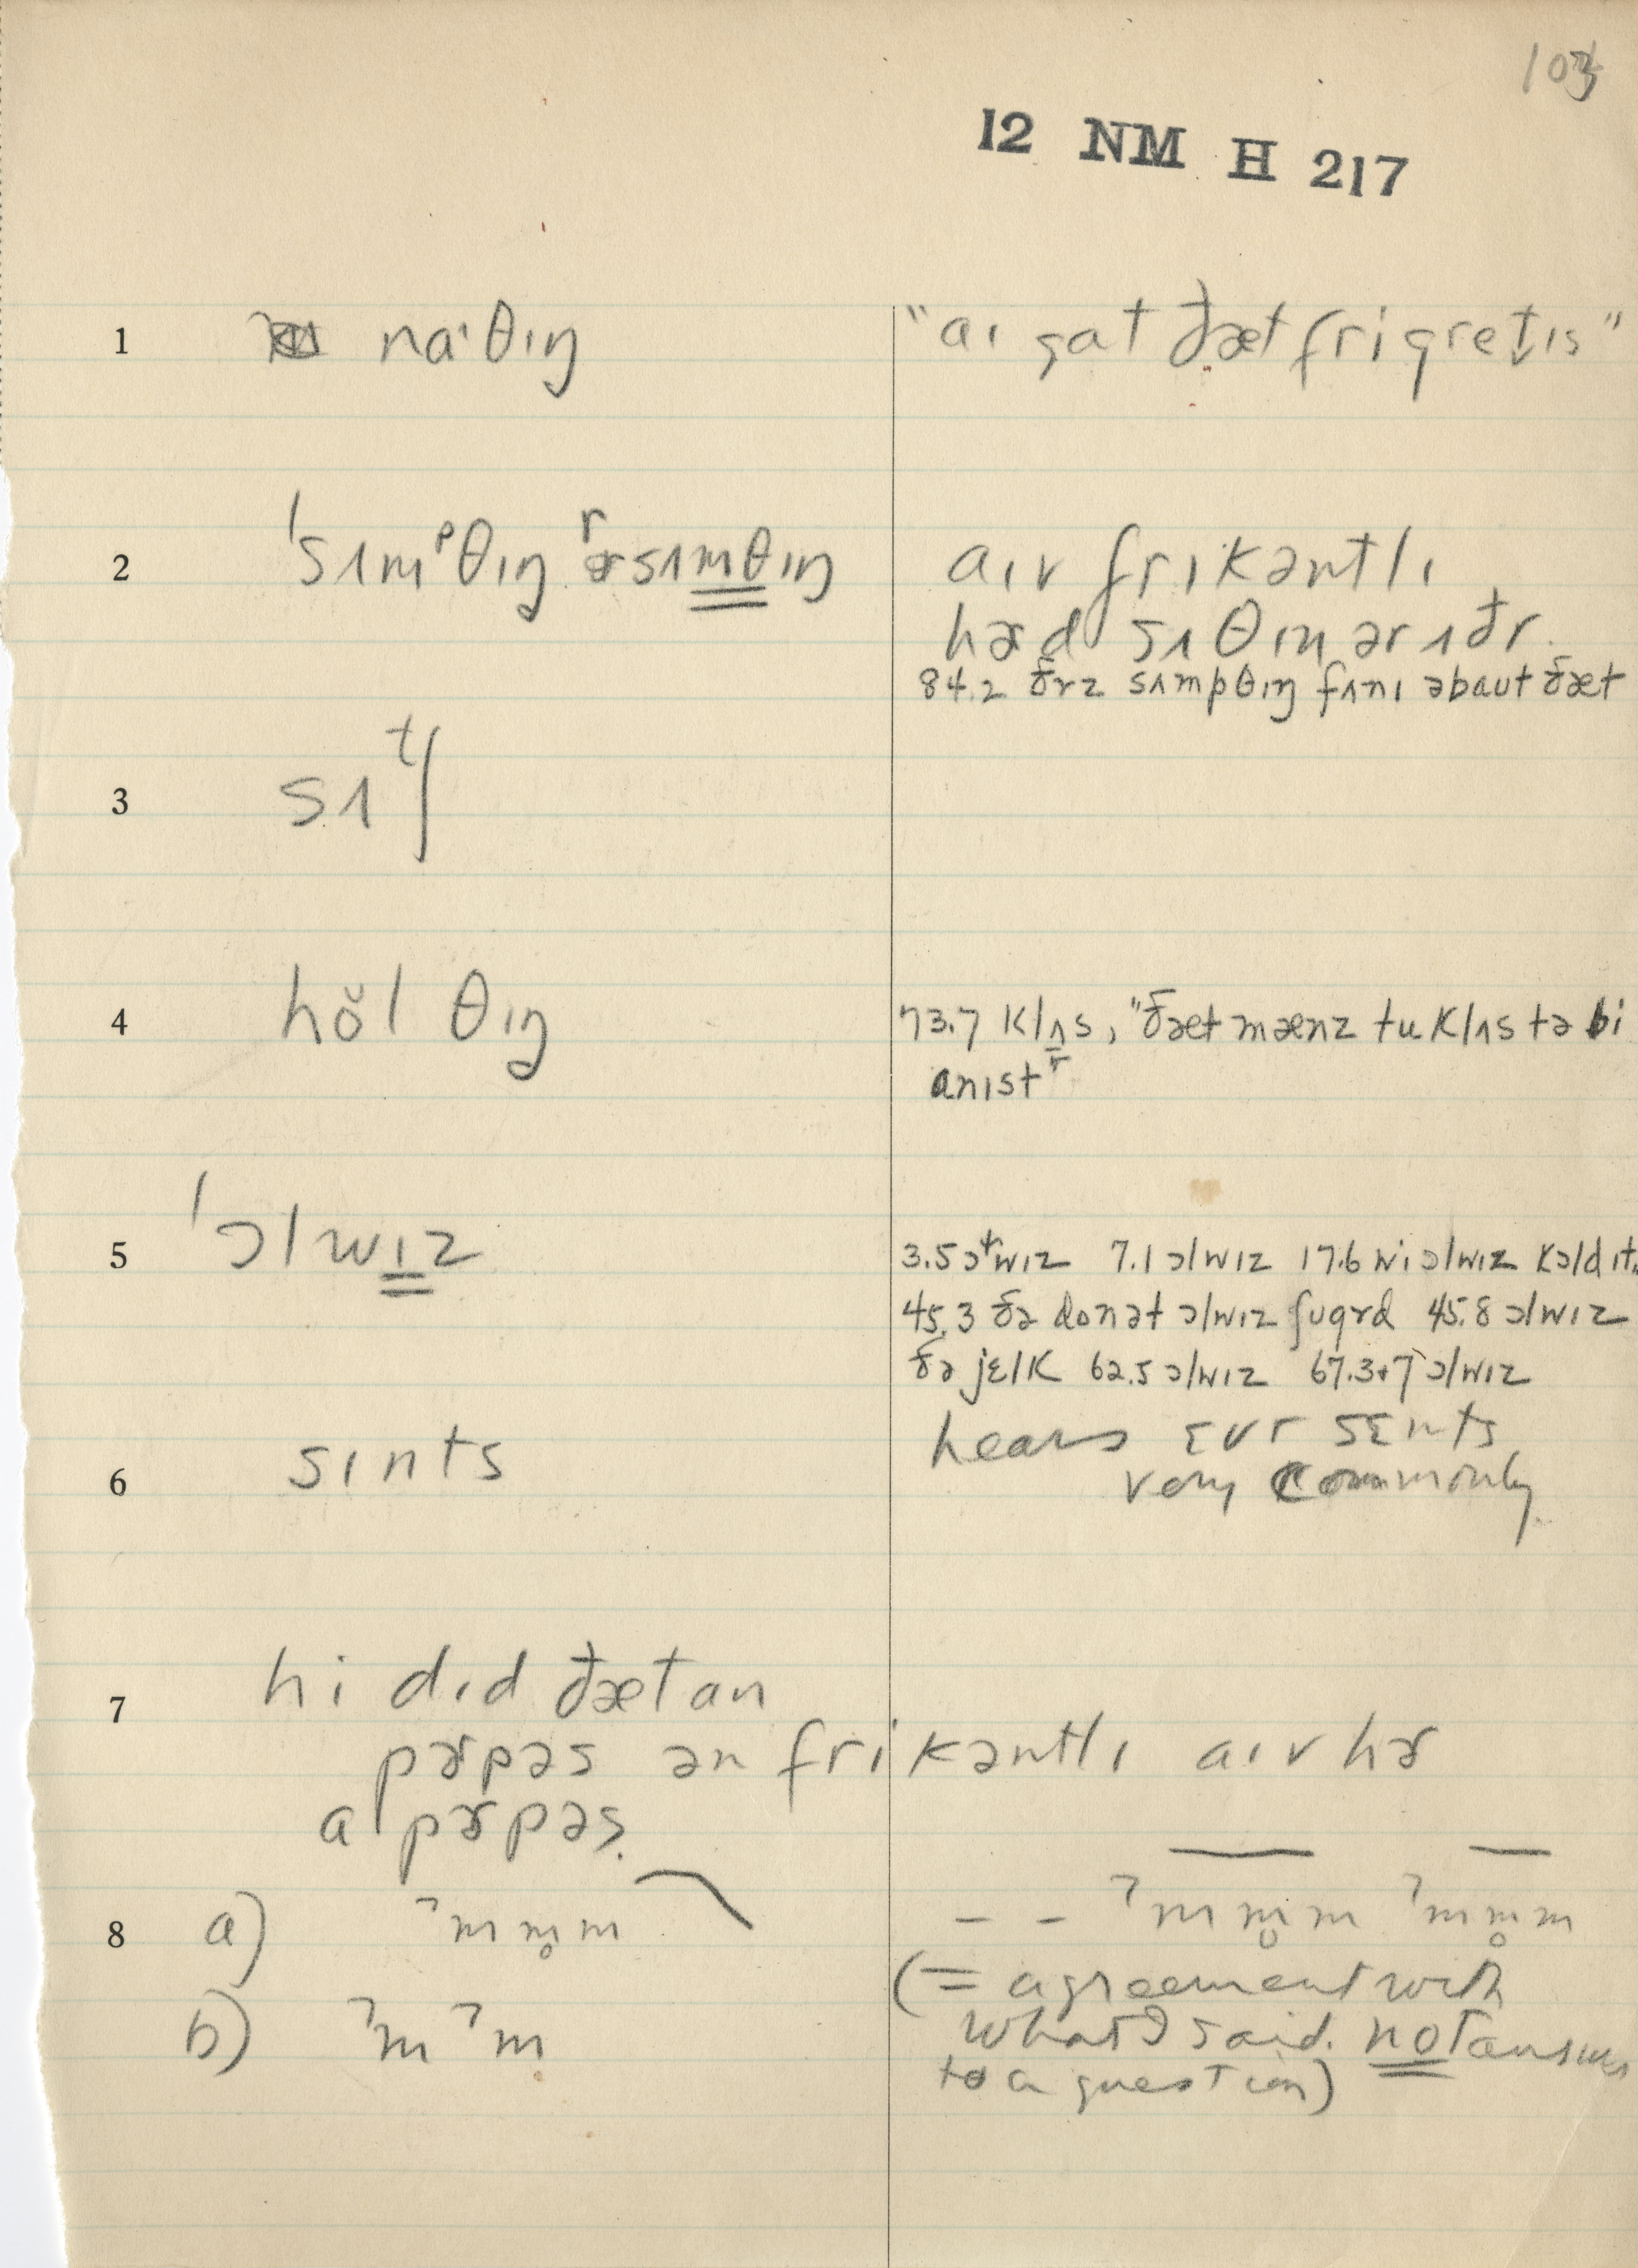 103
12 NM H 217
1 naˑθɪŋ "aɪ gat ðæt fri gretɪs"
2 ˈsʌmᵖθɪŋ ɚ sʌmθɪŋ aɪv frikəntlɪ
hɚd sʌθɪn ər ʌðr.
84.2 ðrz sʌmpθɪŋ fʌnɪ əbaut ðæt
3 sʌtʃ
4 hŏl θɪŋ 73.7 klʌs, "ðæt mænz tu klʌs tə bi
anɪst"
5 ˈɔlwɪz 3.5 ɔlwɪz 7.1 ɔlwɪz 17.6 wi ɔlwɪz kɔld ɪt
45.3 ðə donət ɔlwɪz ʃugɚd 45.8 ɔlwɪz
ðə jɛlk 62.5 ɔlwɪz 67.3+7 ɔlwɪz
6 sɪnts hears ɛvr sɛnts
very commonly
7 hi dɪd ðæt an
pɚpəs ən frikəntlɪ aɪv hɚ
al pɚpəs.
8 a) ˀmm̥m – – ˀmm̥m ˀmm̥m
(= agreement with
b) ˀmˀm what I said. not answer
to a question)